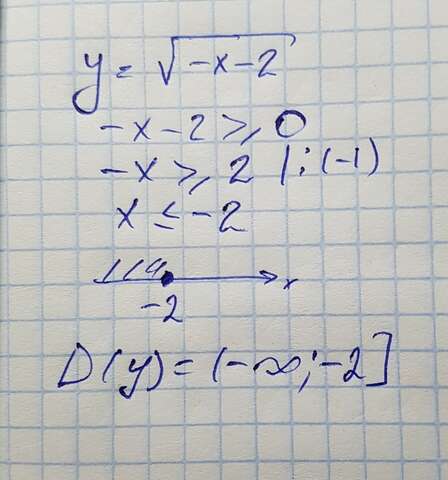 y = √-x-2
-x-2 ⩾ 0
-x ⩾ 2 | : (-1)
x ≤ -2
-2
x
D(y) = (-∞; -2]